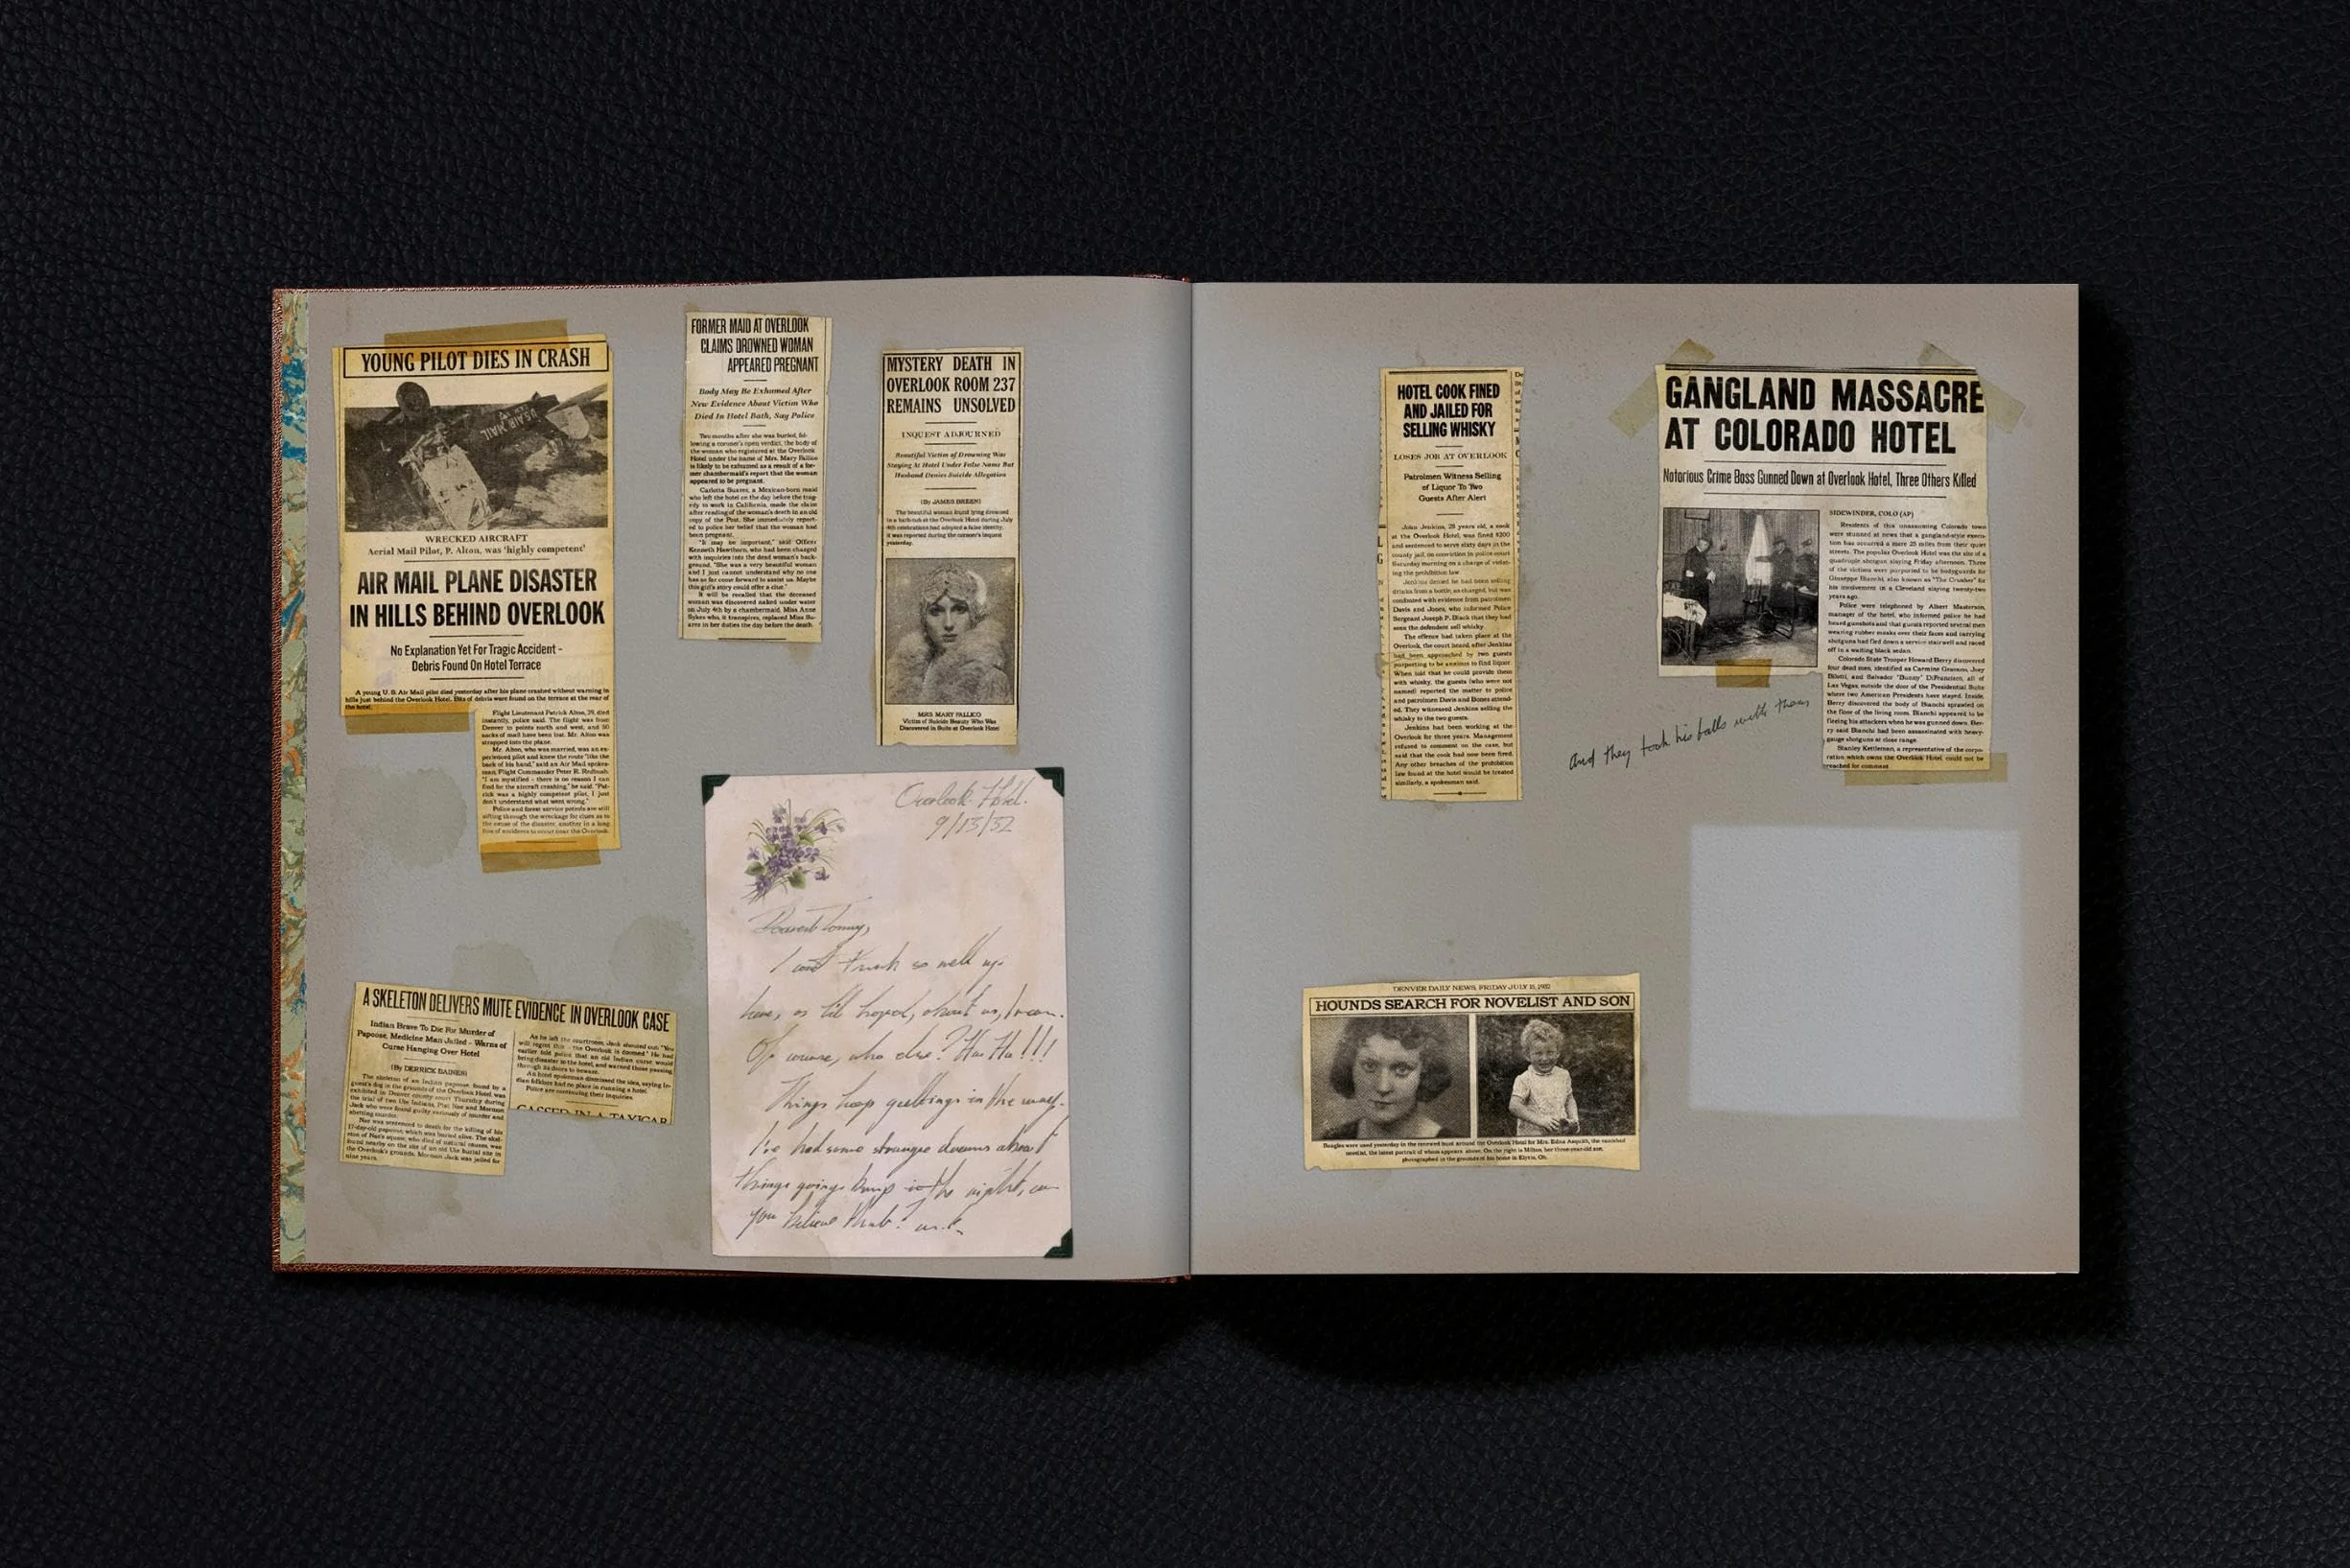 YOUNG PILOT DIES IN CRASH
US AIR MAIL
WRECKED AIRCRAFT
Aerial Mail Pilot, P. Alton, was 'highly competent'
AIR MAIL PLANE DISASTER
IN HILLS BEHIND OVERLOOK
No Explanation Yet For Tragic Accident –
Debris Found On Hotel Terrace
A young U. S. Air Mail pilot died yesterday after his plane crashed without warning in
hills just behind the Overlook Hotel. Bits of debris were found on the terrace at the rear of
the hotel.
Flight Lieutenant Patrick Alton, 29, died
instantly, police said. The flight was from
Denver to points north and west, and 50
sacks of mail have been lost. Mr. Alton was
strapped into the plane.
Mr. Alton, who was married, was an ex-
perienced pilot and knew the route "like the
back of his hand," said an Air Mail spokes-
man, Flight Commander Peter R.
"I am mystified - there is no reason I can
find for the aircraft crashing," he said. "Pat-
rick was a highly competent pilot, I just
don't understand what went wrong."
Police and forest service patrols are still
sifting through the wreckage for clues as to
the cause of the disaster, another in a long
line of accidents to occur near the Overlook.
FORMER MAID AT OVERLOOK
CLAIMS DROWNED WOMAN
APPEARED PREGNANT
Body May Be Exhumed After
New Evidence About Victim Who
Died In Hotel Bath, Say Police
Two months after she was buried, fol-
lowing a coroner's open verdict, the body of
the woman who registered at the Overlook
Hotel under the name of Mrs. Mary Fallico
is likely to be exhumed as a result of a for-
mer chambermaid's report that the woman
appeared to be pregnant.
Carlotta Suarez, a Mexican-born maid
who left the hotel on the day before the trag-
edy to work in California, made the claim
after reading of the woman's death in an old
copy of the Post. She immediately report-
ed to police her belief that the woman had
been pregnant.
"It may be important," said Officer
Kenneth Hawthorn, who had been charged
with inquiries into the dead woman's back-
ground. "She was a very beautiful woman
and I just cannot understand why no one
has so far come forward to assist us. Maybe
this girl's story could offer a clue."
It will be recalled that the deceased
woman was discovered naked under water
on July 4th by a chambermaid, Miss Anne
Sykes who, it transpires, replaced Miss Su-
arez in her duties the day before the death.
MYSTERY DEATH IN
OVERLOOK ROOM 237
REMAINS UNSOLVED
INQUEST ADJOURNED
Beautiful Victim of Drowning Was
Staying At Hotel Under False Name But
Husband Denies Suicide Allegation
(By JAMES BREEN)
The beautiful woman found lying drowned
in a bath-tub at the Overlook Hotel during July
4th celebrations had adopted a false identity,
it was reported during the coroner's inquest
yesterday.
MRS. MARY FALLICO
Victim of Suicide Beauty Who Was
Discovered in Suite at Overlook Hotel
A SKELETON DELIVERS MUTE EVIDENCE IN OVERLOOK CASE
Indian Brave To Die For Murder of
Papoose, Medicine Man Jailed - Warns of
Curse Hanging Over Hotel
(By DERRICK BAINES)
The skeleton of an Indian papoose found by a
guest's dog in the grounds of the Overlook Hotel, was
exhibited in Denver county court Thursday during
the trial of two Ute Indians, Piat Nae and Mormon
Jack who were found guilty variously of murder and
abetting murder.
Nae was sentenced to death for the killing of his
17-day-old papoose, which was buried alive. The skel-
eton of Nae's squaw, who died of natural causes, was
found nearby on the site of an old Ute burial site in
the Overlook's grounds. Mormon Jack was jailed for
nine years.
As he left the courtroom, Jack shouted out: "You
will regret this - the Overlook is doomed." He had
earlier told police that an old Indian curse would
bring disaster to the hotel, and warned those passing
through its doors to beware.
An hotel spokesman dismissed the idea, saying In-
dian folklore had no place in running a hotel.
Police are continuing their inquiries.
GASSED IN A TAXICAB
Overlook Hotel.
9/13/32
Dearest Tommy,
I can't think so well up
here, as I'd hoped, about us, I mean.
Of course, who else? Ha Ha!!!
Things keep getting in the way.
I've had some strange dreams about
things going bump in the night, can
you believe that?
HOTEL COOK FINED
AND JAILED FOR
SELLING WHISKY
LOSES JOB AT OVERLOOK
Patrolmen Witness Selling
of Liquor To Two
Guests After Alert
John Jenkins, 29 years old, a cook
at the Overlook Hotel, was fined $200
and sentenced to serve sixty days in the
county jail, on conviction in police court
Saturday morning on a charge of violat-
ing the prohibition law.
Jenkins denied he had been selling
drinks from a bottle, as charged, but was
confronted with evidence from patrolmen
Davis and Jones, who informed Police
Sergeant Joseph P. Black that they had
seen the defendent sell whisky.
The offence had taken place at the
Overlook, the court heard, after Jenkins
had been approached by two guests
purporting to be anxious to find liquor.
When told that he could provide them
with whisky, the guests (who were not
named) reported the matter to police
and patrolmen Davis and Bones attend-
ed. They witnessed Jenkins selling the
whisky to the two guests.
Jenkins had been working at the
Overlook for three years. Management
refused to comment on the case, but
said that the cook had now been fired.
Any other breaches of the prohibition
law found at the hotel would be treated
similarly, a spokesman said.
GANGLAND MASSACRE
AT COLORADO HOTEL
Notorious Crime Boss Gunned Down at Overlook Hotel, Three Others Killed
SIDEWINDER, COLO (AP)
Residents of this unassuming Colorado town
were stunned at news that a gangland-style execu-
tion has occurred a mere 25 miles from their quiet
streets. The popular Overlook Hotel was the site of a
quadruple shotgun slaying Friday afternoon. Three
of the victims were purported to be bodyguards for
Giuseppe Bianchi, also known as "The Crusher" for
his involvement in a Cleveland slaying twenty-two
years ago.
Police were telephoned by Albert Masterson,
manager of the hotel, who informed police he had
heard gunshots and that guests reported several men
wearing rubber masks over their faces and carrying
shotguns had fled down a service stairwell and raced
off in a waiting black sedan.
Colorado State Trooper Howard Berry discovered
four dead men, identified as Carmine Grasson, Joey
Biletti, and Salvador "Bunny" DiFrancisco, all of
Las Vegas, outside the door of the Presidential Suite
where two American Presidents have stayed. Inside,
Berry discovered the body of Bianchi sprawled on
the floor of the living room. Bianchi appeared to be
fleeing his attackers when he was gunned down. Ber-
ry said Bianchi had been assassinated with heavy-
gauge shotguns at close range.
Stanley Kettleman, a representative of the corpo-
ration which owns the Overlook Hotel could not be
reached for comment.
And they took his balls with them
DENVER DAILY NEWS, FRIDAY JULY 1932
HOUNDS SEARCH FOR NOVELIST AND SON
Beagles were used yesterday in the renewed hunt around the Overlook Hotel for Mrs. Edna Asquith, the vanished
novelist, the latest portrait of whom appears above. On the right is Milton, her three-year-old son,
photographed in the grounds of his home in Elyria, Oh.